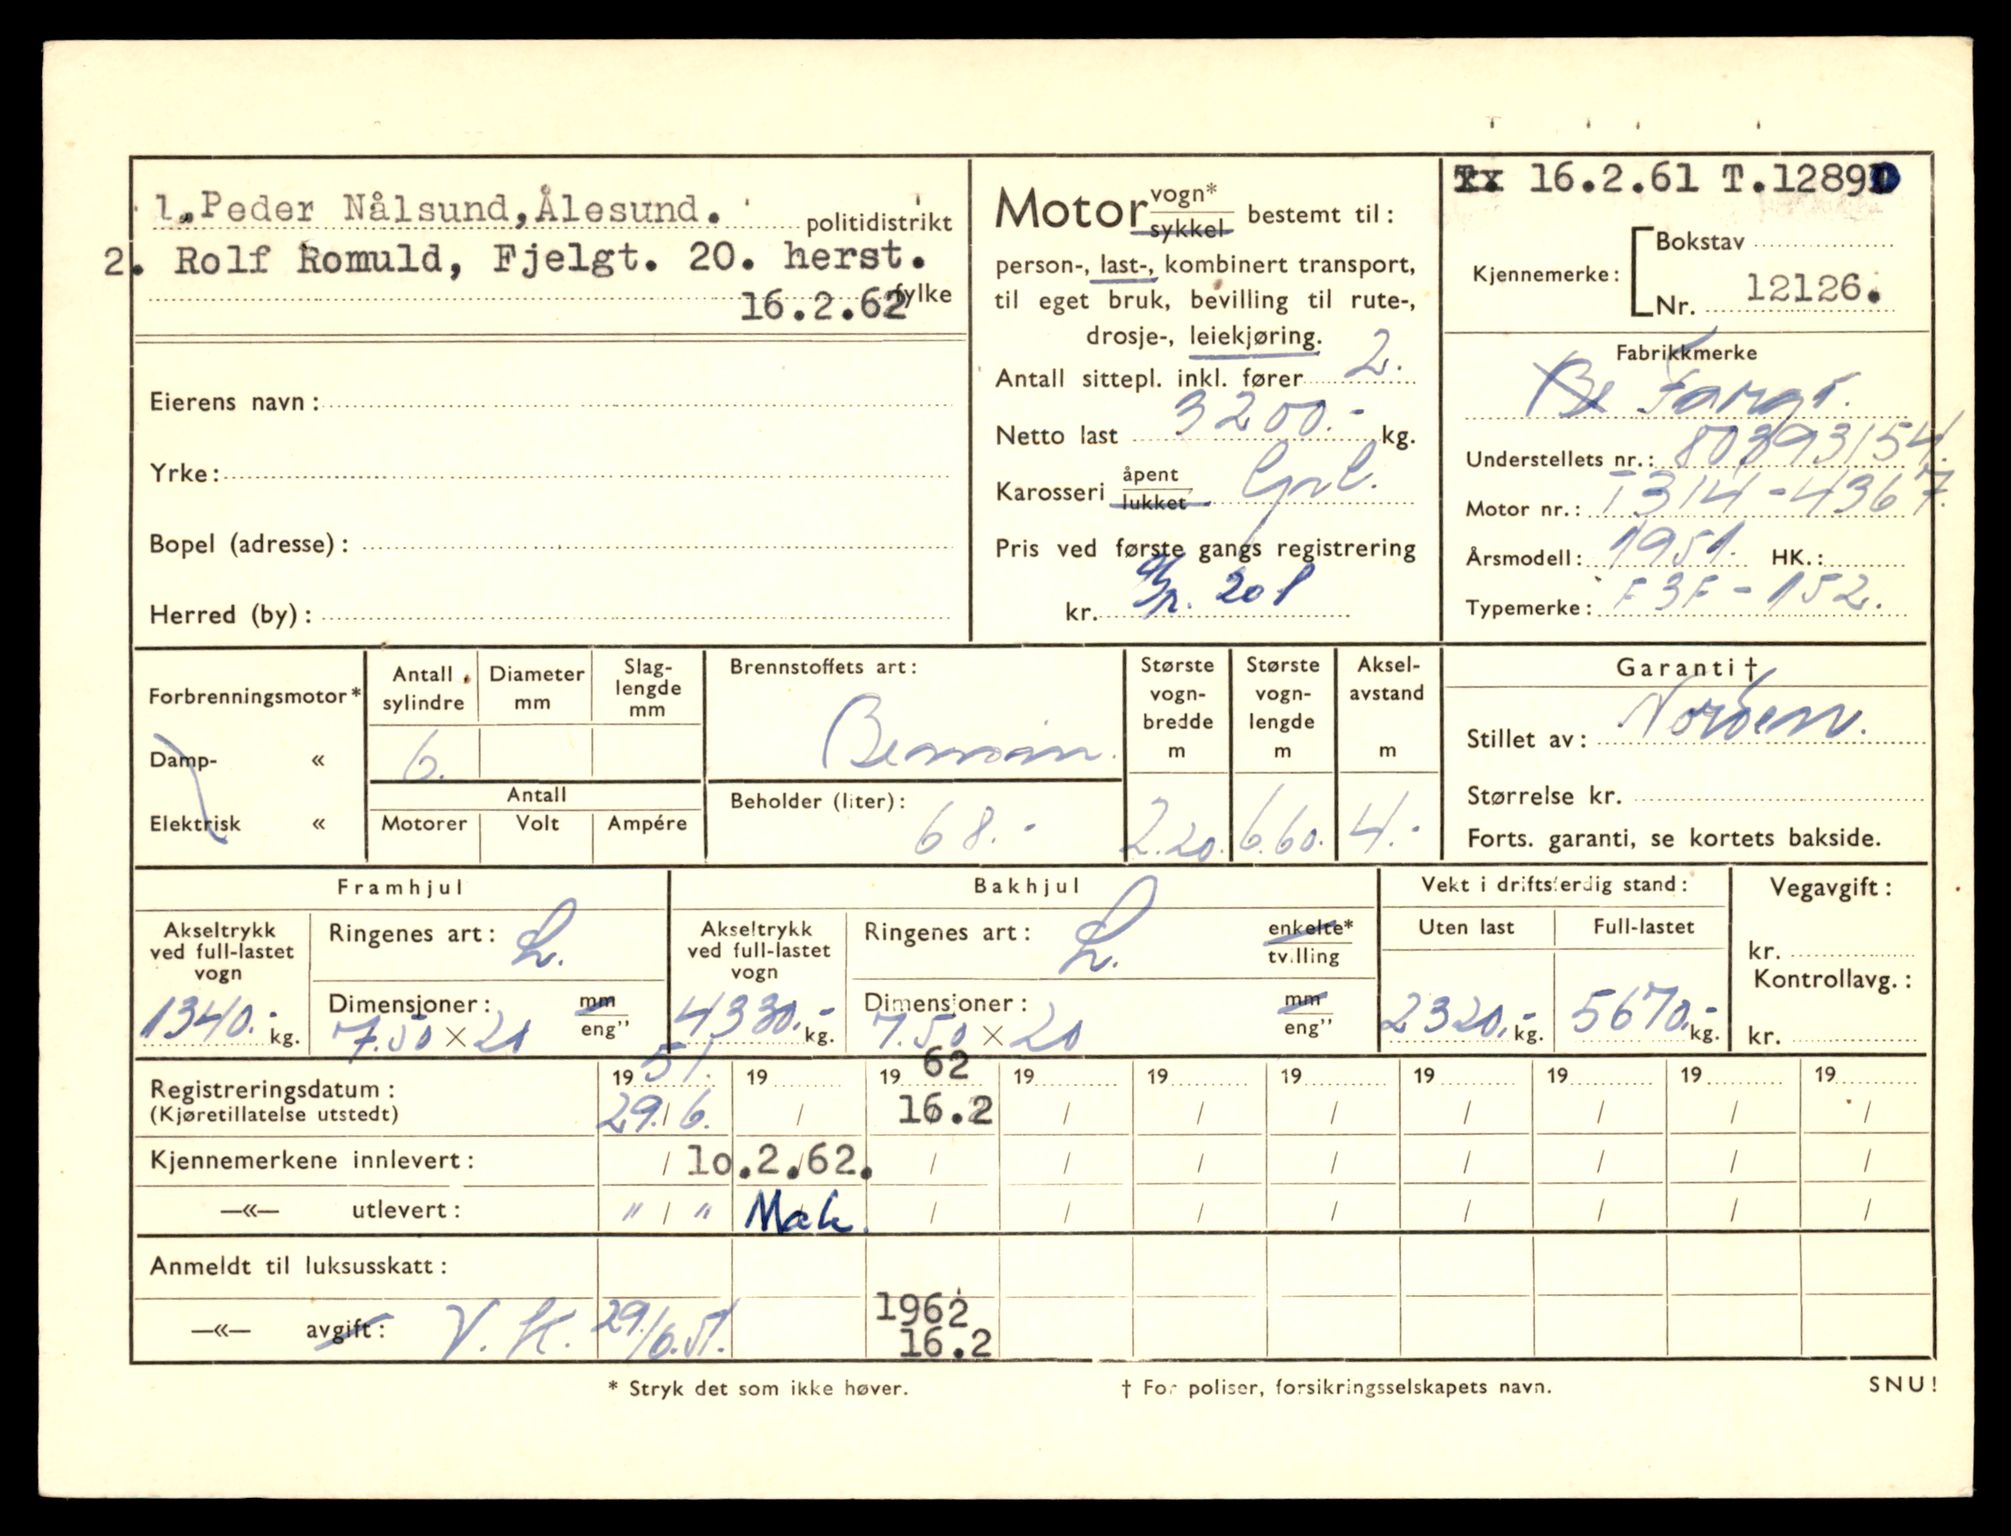 1. Peder Nålsund, Ålesund. politidistrikt
2. Rolf Romuld, Fjelgt. 20. herst.
16.2.62 fylke
Eierens navn:
Yrke:
Bopel (adresse):
Herred (by):
Motor vogn* sykkel bestemt til:
person-, last-, kombinert transport,
til eget bruk, bevilling til rute-,
drosje-, leiekjøring.
Antall sittepl. inkl. fører 2.
Netto last 3200.- kg.
Karosseri åpent lukket
Pris ved første gangs registrering
kr. 208
16.2.61 T.1289
Kjennemerke: Bokstav
Nr. 12126.
Fabrikkmerke
Fargo.
Understellets nr.: 80393154.
Motor nr.: T314-4367.
Årsmodell: 1951. HK.:
Typemerke: F3F-152.
Forbrenningsmotor*
Damp- «
Elektrisk «
Antall sylindre
Diameter mm
Slag-lengde mm
6.
Antall
Motorer Volt Ampére
Brennstoffets art:
Bensin.
Beholder (liter):
68.-
Største vogn-bredde m
2.20.
Største vogn-lengde m
6.60.
Aksel-avstand m
4.-
Garanti †
Stillet av: Norden.
Størrelse kr.
Forts. garanti, se kortets bakside.
Framhjul
Akseltrykk ved full-lastet vogn
1340.- kg.
Ringenes art: L.
Dimensjoner: mm eng"
7.50 × 20
Bakhjul
Akseltrykk ved full-lastet vogn
4330.- kg.
Ringenes art: L. enkelte* tvilling
Dimensjoner: mm eng"
7.50 × 20
Vekt i driftsferdig stand:
Uten last Full-lastet
2320.- kg. 5670.- kg.
Vegavgift:
kr.
Kontrollavg.:
kr.
Registreringsdatum: 19 51. 19 19 62 19 19 19 19 19 19 19
(Kjøretillatelse utstedt) 29./6. / 16.2 / / / / / / /
Kjennemerkene innlevert: / 10.2.62. / / / / / / / /
—«— utlevert: " / " Mak. / / / / / / / /
Anmeldt til luksusskatt:
—«— avgift: V. K. 29./6.51. 1962
16.2
* Stryk det som ikke høver.
† For poliser, forsikringsselskapets navn.
SNU!